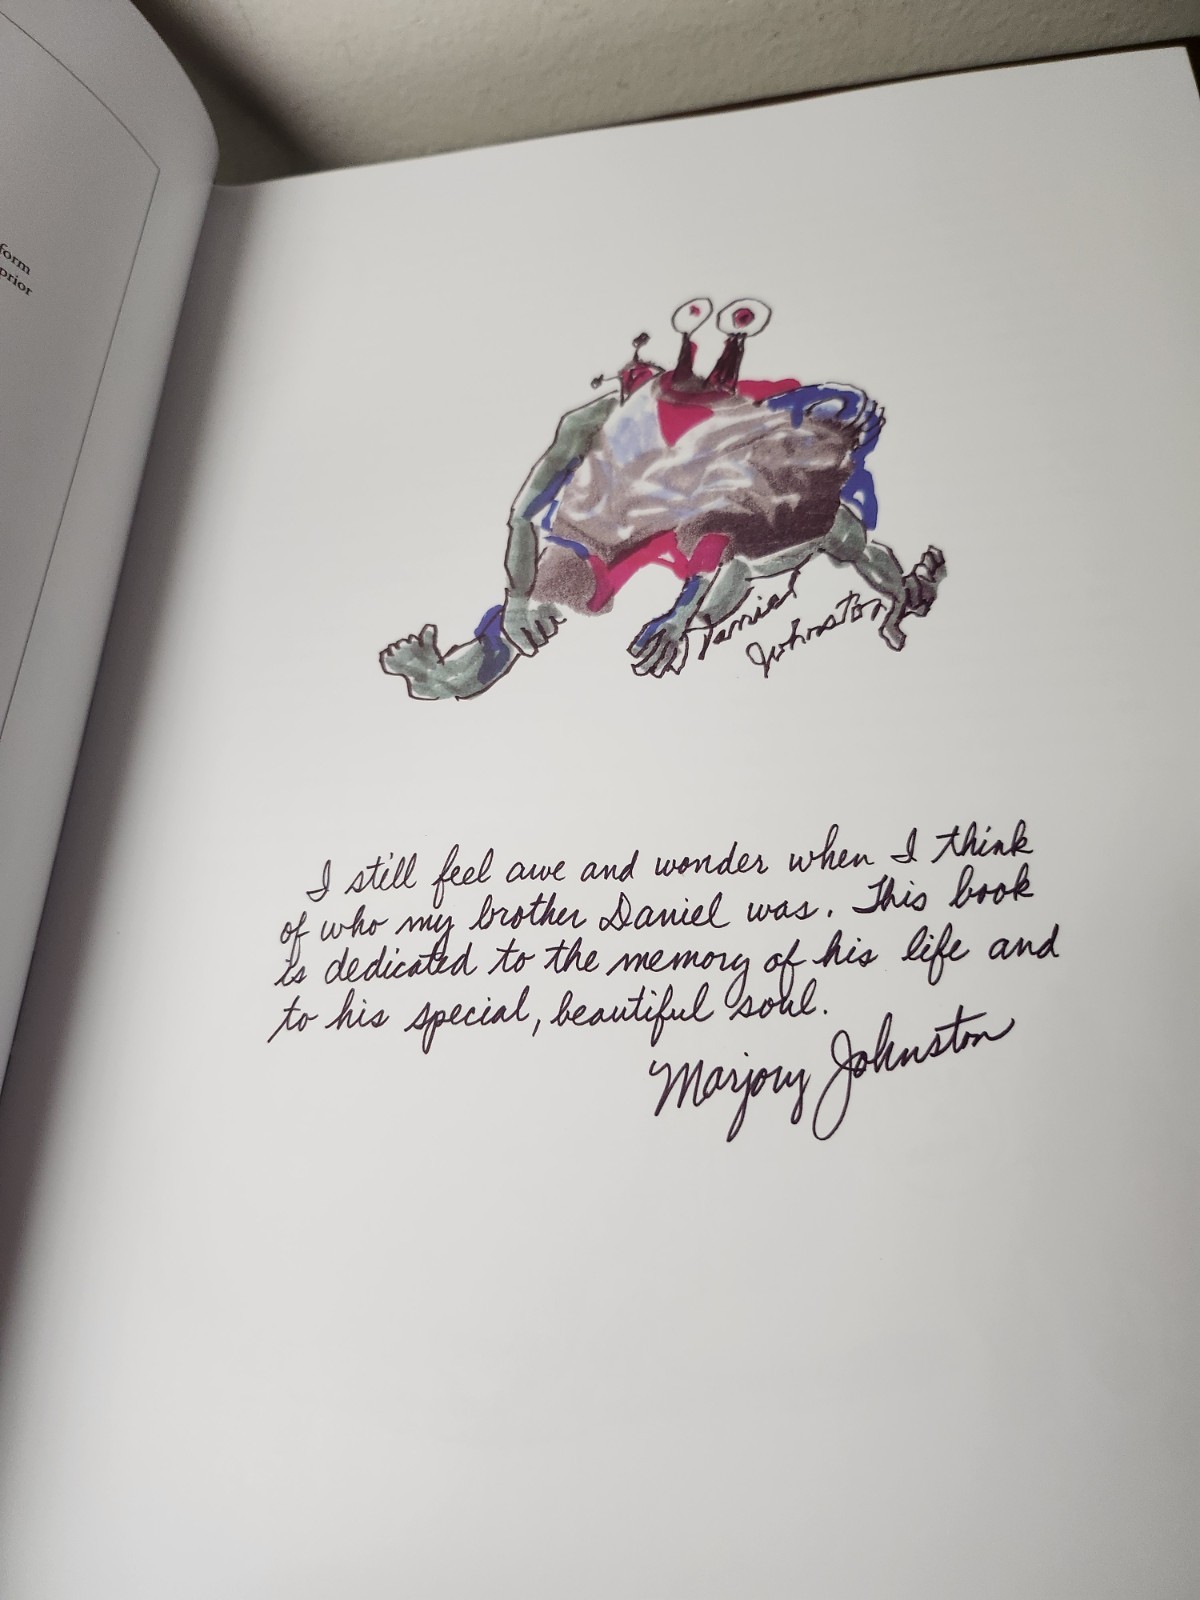 form
prior
Daniel
Johnston
I still feel awe and wonder when I think
of who my brother Daniel was. This book
is dedicated to the memory of his life and
to his special, beautiful soul.
Marjory Johnston